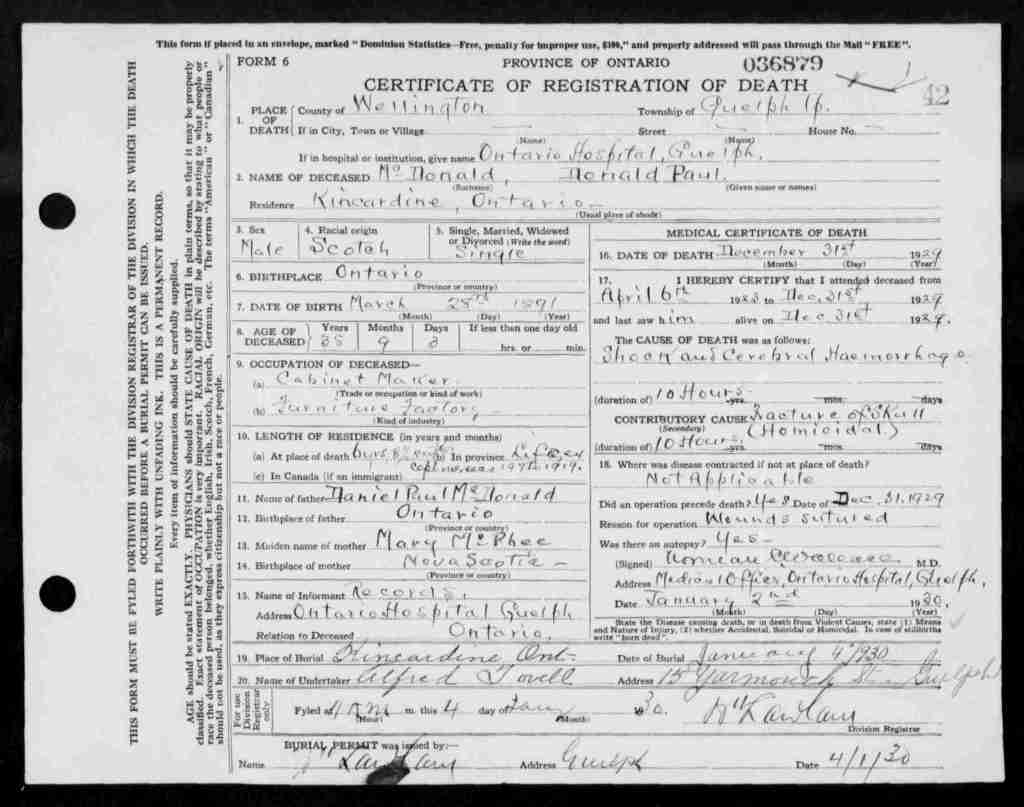 This form if placed in an envelope, marked "Dominion Statistics—Free, penalty for improper use, $100," and properly addressed will pass through the Mail "FREE".
THIS FORM MUST BE FYLED FORTHWITH WITH THE DIVISION REGISTRAR OF THE DIVISION IN WHICH THE DEATH
OCCURRED BEFORE A BURIAL PERMIT CAN BE ISSUED.
WRITE PLAINLY WITH UNFADING INK. THIS IS A PERMANENT RECORD.
Every item of information should be carefully supplied.
AGE should be stated EXACTLY. PHYSICIANS should STATE CAUSE OF DEATH in plain terms, so that it may be properly
classified. Exact statement of OCCUPATION is very important. RACIAL ORIGIN will be described by stating to what people or
race the deceased person belonged, whether English, Irish, Scotch, French, German, etc. The terms "American" or "Canadian"
should not be used, as they express citizenship but not a race or people.
FORM 6 PROVINCE OF ONTARIO 036879
CERTIFICATE OF REGISTRATION OF DEATH 42
1. PLACE OF DEATH County of Wellington Township of Guelph Tp.
If in City, Town or Village — Street — House No. —
(Name) (Name)
If in hospital or institution, give name Ontario Hospital, Guelph.
2. NAME OF DECEASED McDonald, Donald Paul.
(Surname) (Given name or names)
Residence Kincardine, Ontario —
(Usual place of abode)
3. Sex Male
4. Racial origin Scotch
5. Single, Married, Widowed or Divorced (Write the word) Single
6. BIRTHPLACE Ontario
(Province or country)
7. DATE OF BIRTH March 28th 1891
(Month) (Day) (Year)
8. AGE OF DECEASED Years Months Days If less than one day old
9 3 hrs. or min.
9. OCCUPATION OF DECEASED—
(a) Cabinet Maker.
(Trade or occupation or kind of work)
(b) Furniture Factory —
(Kind of industry)
10. LENGTH OF RESIDENCE (in years and months)
(a) At place of death (b) In province Life ex
(c) In Canada (if an immigrant)
11. Name of father Daniel Paul McDonald
12. Birthplace of father Ontario
(Province or country)
13. Maiden name of mother Mary McPhee
14. Birthplace of mother Nova Scotia —
(Province or country)
15. Name of Informant Records,
Address Ontario Hospital Guelph
Relation to Deceased Ontario.
MEDICAL CERTIFICATE OF DEATH
16. DATE OF DEATH December 31st 1929
(Month) (Day) (Year)
17. I HEREBY CERTIFY that I attended deceased from
April 6th 192 to Dec. 31st 1929
and last saw him alive on Dec 31st 1929.
The CAUSE OF DEATH was as follows:
Shock and Cerebral Haemorrhage
(duration of) 10 Hours yrs. mos. days
CONTRIBUTORY CAUSE Fracture of Skull
(Secondary) (Homicidal.)
(duration of) 10 Hours. yrs. mos. days
18. Where was disease contracted if not at place of death?
Not Applicable
Did an operation precede death? Yes Date of Dec. 31. 1929
Reason for operation Wounds sutured
Was there an autopsy? Yes —
(Signed) M.D.
Address Medical Officer, Ontario Hospital, Guelph.
Date January 2nd 1930.
(Month) (Day) (Year)
State the Disease causing death, or in death from Violent Causes, state (1) Means
and Nature of Injury, (2) whether Accidental, Suicidal or Homicidal. In case of stillbirths
write "born dead".
19. Place of Burial Kincardine Ont. Date of Burial January 4 1930
20. Name of Undertaker Alfred Tovell Address 15 Yarmouth St. Guelph
For use Division Registrar only
Fyled at m. this 4 day of Jan 1930.
(Hour) (Month)
Division Registrar
BURIAL PERMIT was issued by:—
Name Address Guelph Date 4/1/30